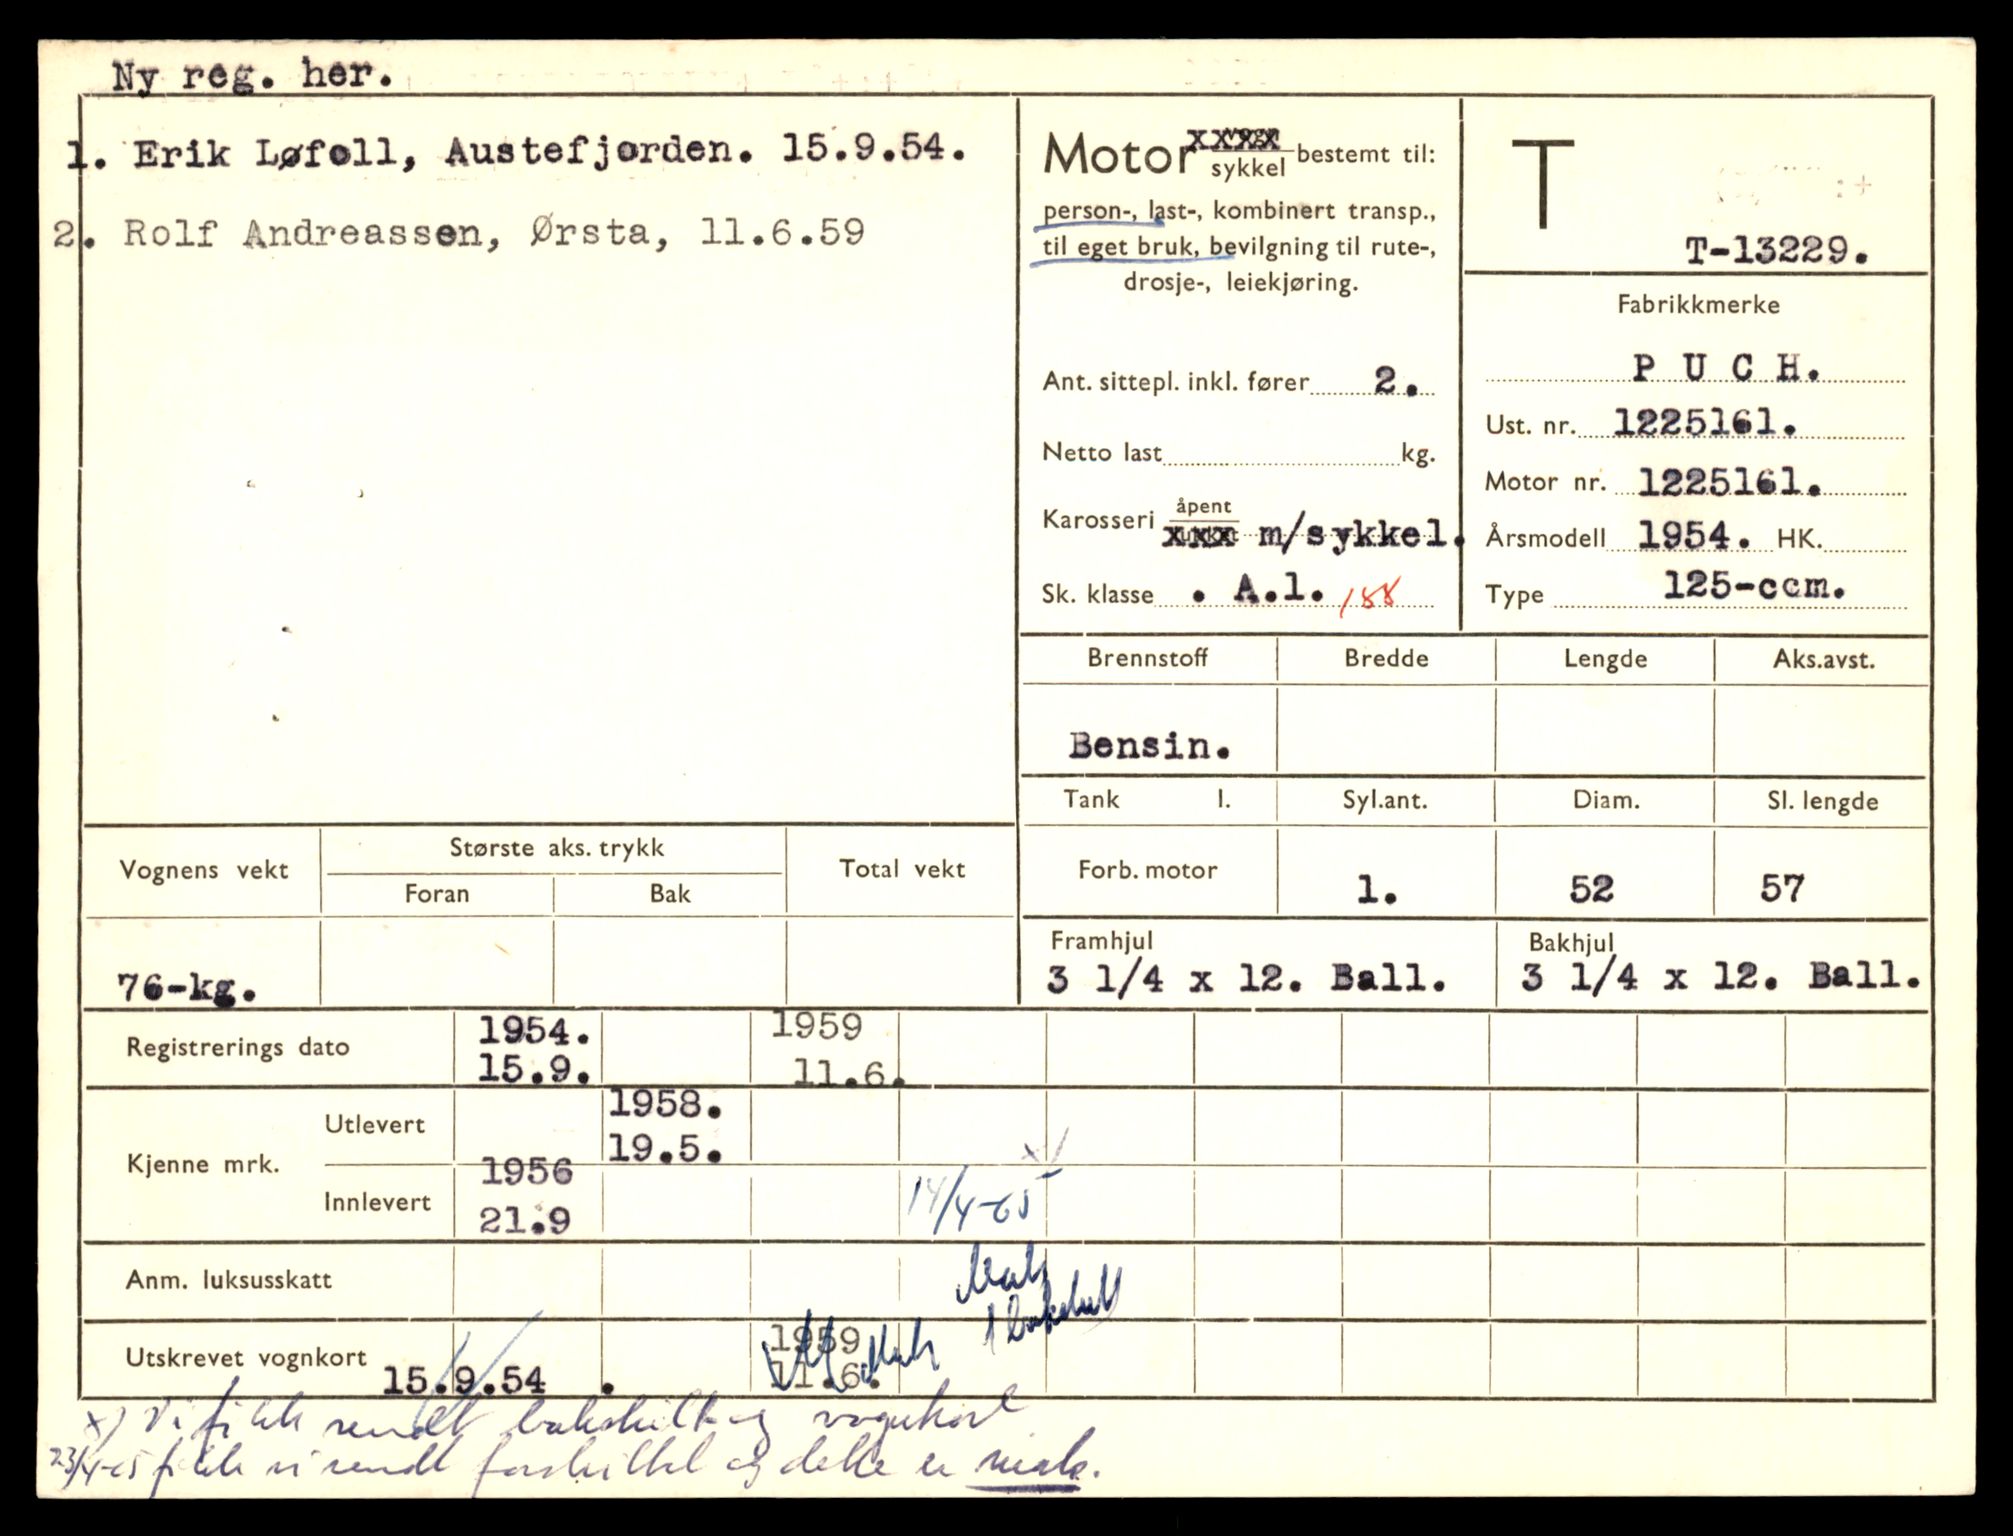 Ny reg. her.
1. Erik Løfoll, Austefjorden. 15.9.54.
2. Rolf Andreassen, Ørsta, 11.6.59
Motor vogn xxxx
sykkel bestemt til:
person-, last-, kombinert transp.,
til eget bruk, bevilgning til rute-,
drosje-, leiekjøring.
Ant. sittepl. inkl. fører 2.
Netto last kg.
Karosseri åpent
xxx m/sykkel.
Sk. klasse . A.1. 188
T
T-13229.
Fabrikkmerke
P U C H.
Ust. nr. 1225161.
Motor nr. 1225161.
Årsmodell 1954. HK.
Type 125-ccm.
Brennstoff Bredde Lengde Aks.avst.
Bensin.
Tank l. Syl.ant. Diam. Sl. lengde
Forb. motor 1. 52 57
Framhjul Bakhjul
3 1/4 x 12. Ball. 3 1/4 x 12. Ball.
Vognens vekt Største aks. trykk Total vekt
Foran Bak
76-kg.
Registrerings dato 1954. 1959
15.9. 11.6.
Kjenne mrk. Utlevert 1958.
19.5.
Innlevert 1956 14/4-65 x)
21.9
Anm. luksusskatt Mak
1 bakskilt
Utskrevet vognkort 15.9.54 . 1959
11.6. Mak
x) Vi fikk sendt bakskilt og vognkort
23/4-65 fikk vi sendt forskiltet og dette er mak.